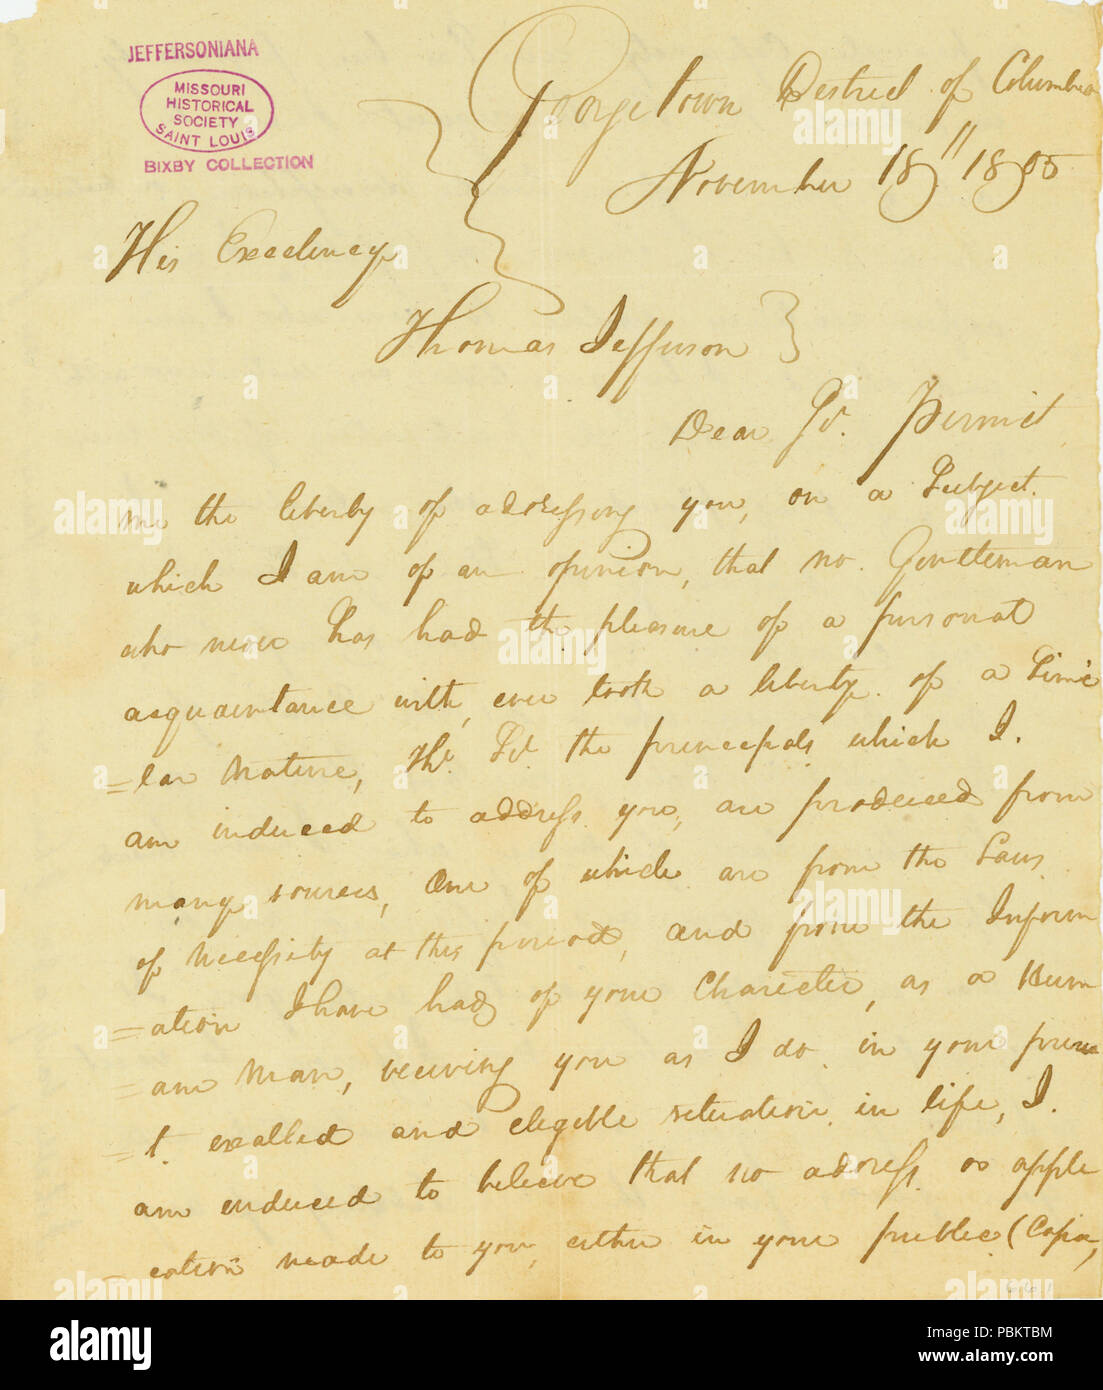 JEFFERSONIANA
MISSOURI
HISTORICAL
SOCIETY
SAINT LOUIS
BIXBY COLLECTION
Georgetown Destrect of Columbia
November 18" 1805
His Excelency
Thomas Jefferson
Dear Sr. Permit
me the liberty of addressing you, on a Subject.
which I am of an opinion, that no. Gentleman
who never has had the pleasure of a personal
acquaintance with, ever took a liberty. of a Simi
=lar Nature, The. Sd. the princepals which I.
am induced to address you, are produced from
many sources, One of which are from the Laws.
of Necessity at this period, and from the Inform
=ation I have had, of your Charecter, as a Hum
=ane Man, veiwing you as I do. in your presen
=t. exalted and elegible setuation. in life, I.
am enduced to beleive that no address. or apple
=cation made to you, either in your publec (Capa,
alamy
Image ID: PBKTBM
www.alamy.com